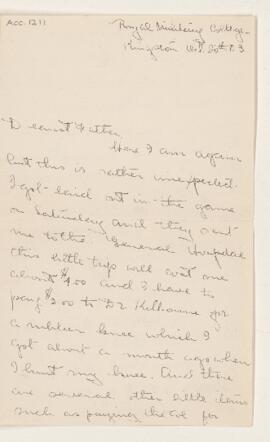 ACC. 1211
Royal Military College
Kingston Oct. 20th. 03
Dearest Father,
Here I am again
but this is rather unexpected.
I got laid out in the game
on Saturday and they sent
me to the "General Hospital"
this little trip will cost me
about $4.00 and I have to
pay $3.00 to Dr Kilborne for
a rubber knee which I
got about a month ago when
I hurt my knee. And there
are several other little items
such as paying the Col for